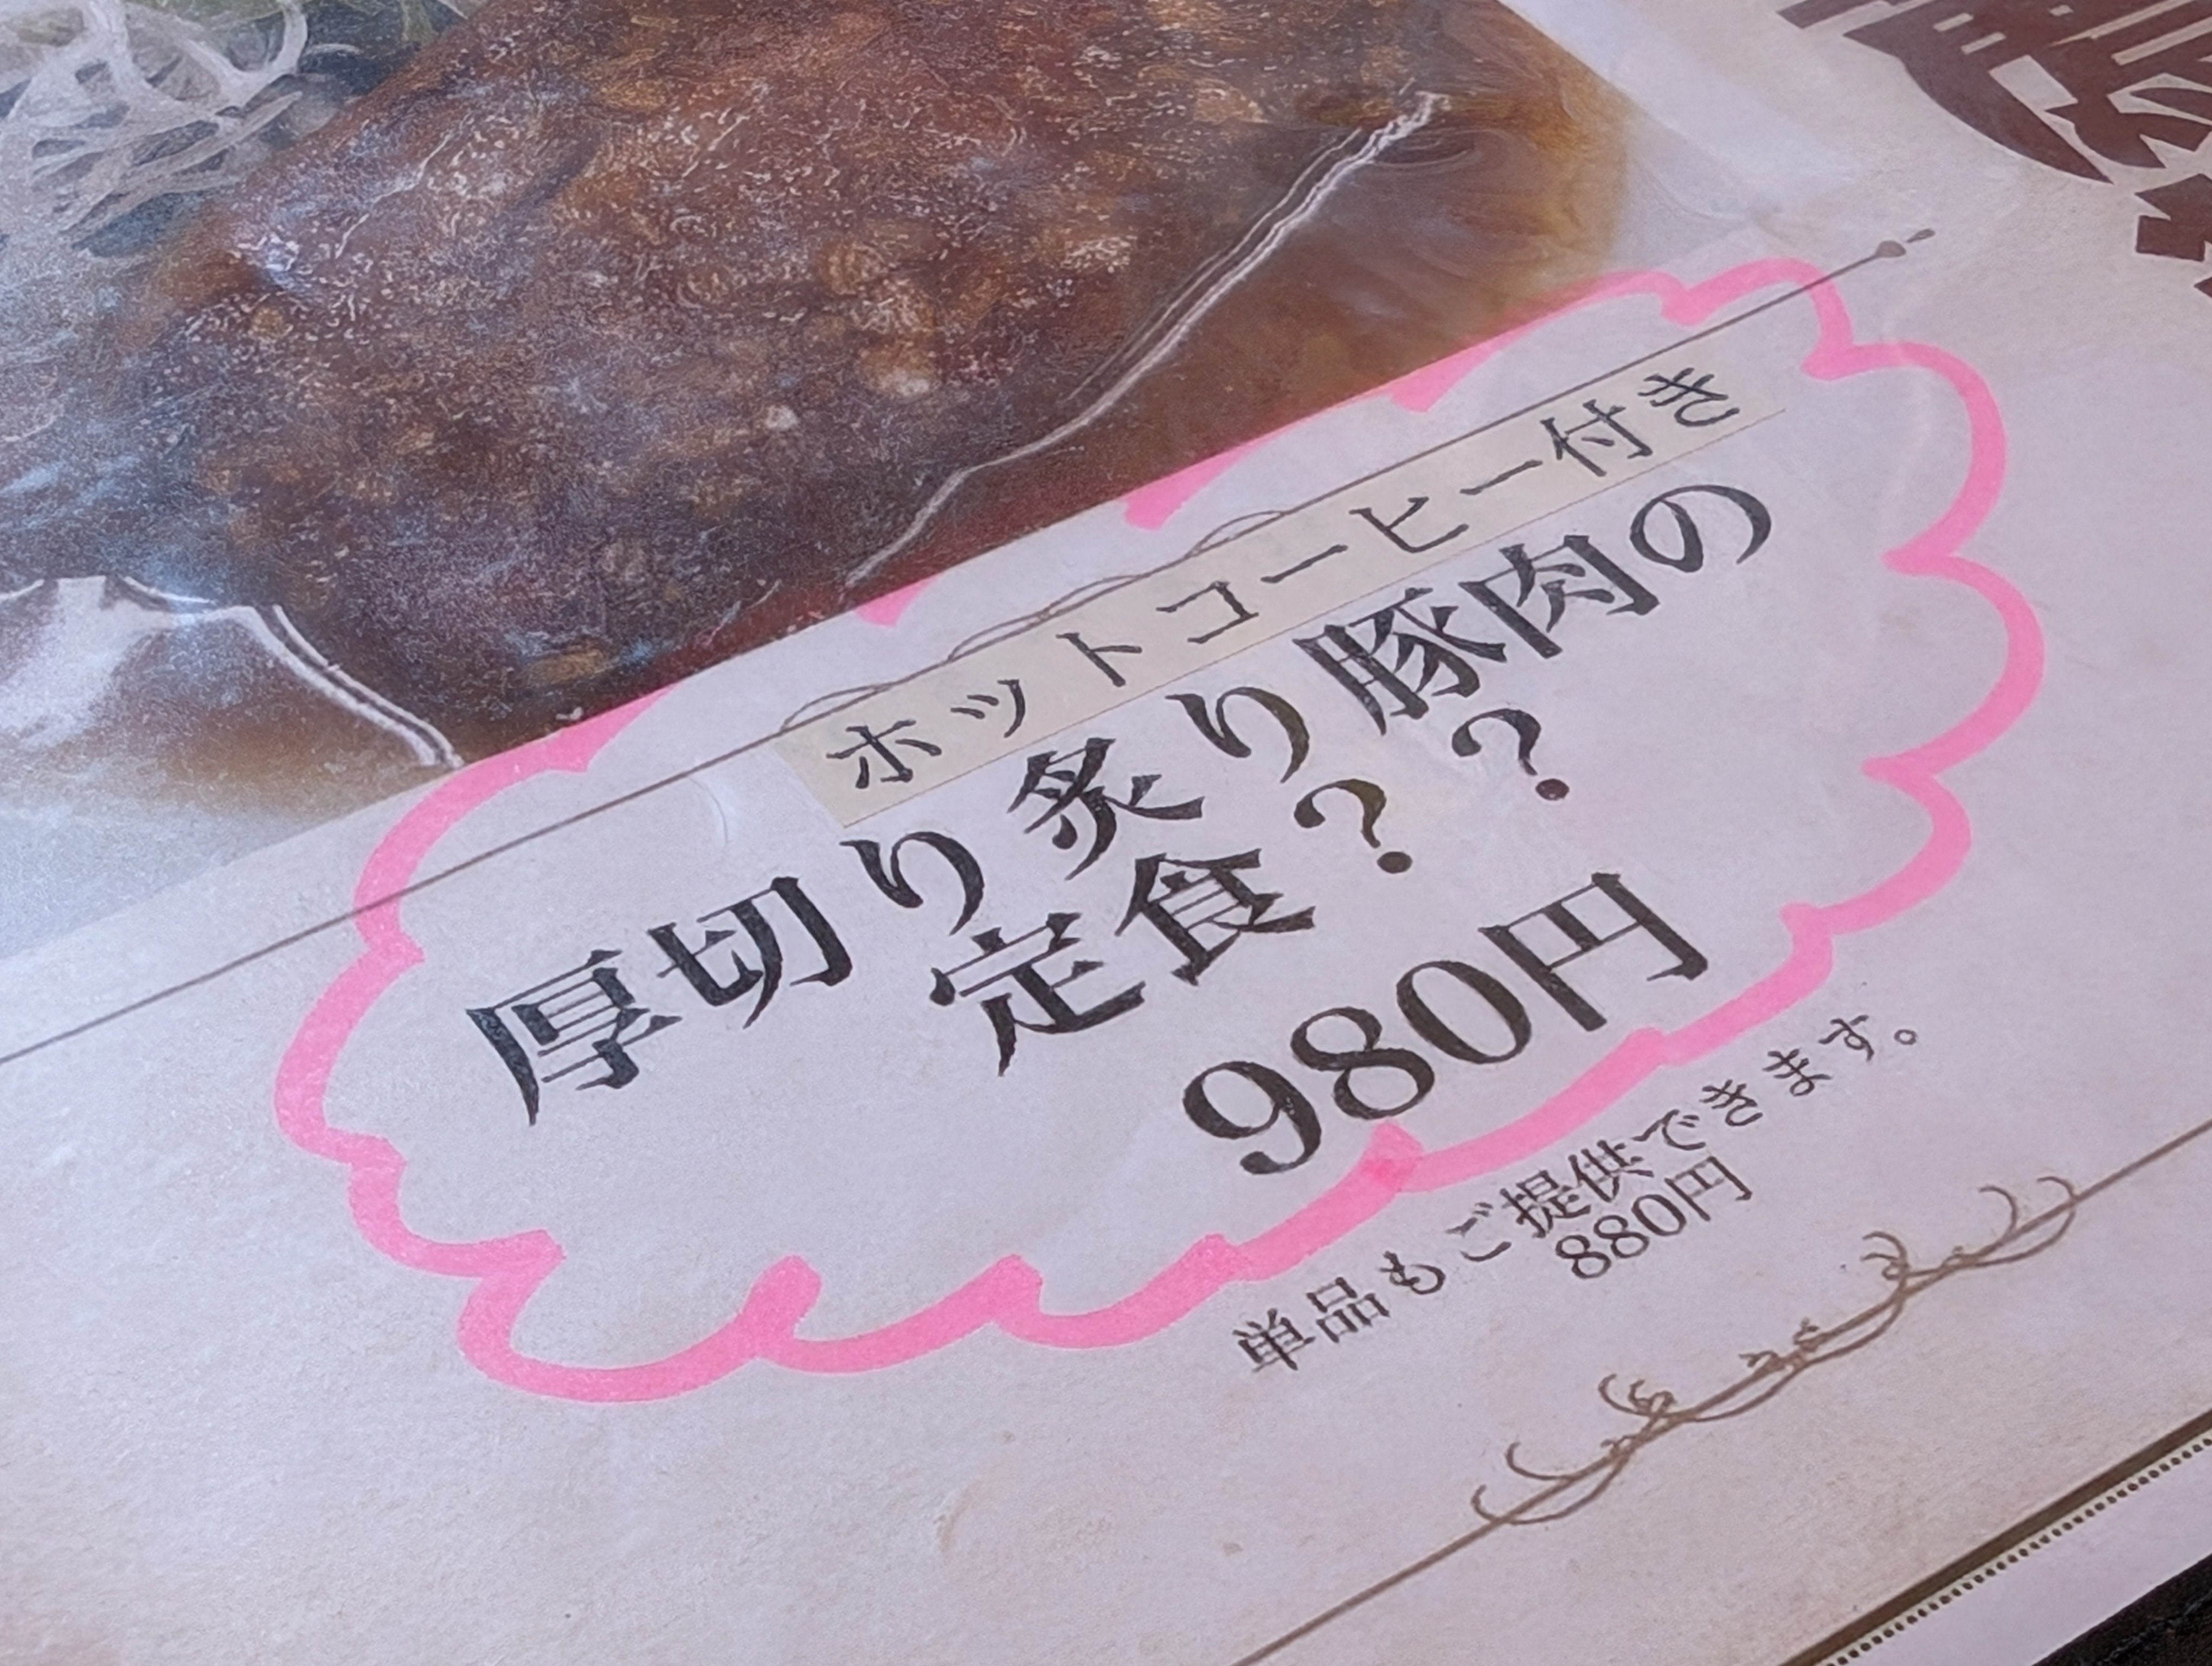 ホットコーヒー付き
厚切り炙り豚肉の
定食？？
980円
単品もご提供できます。
880円